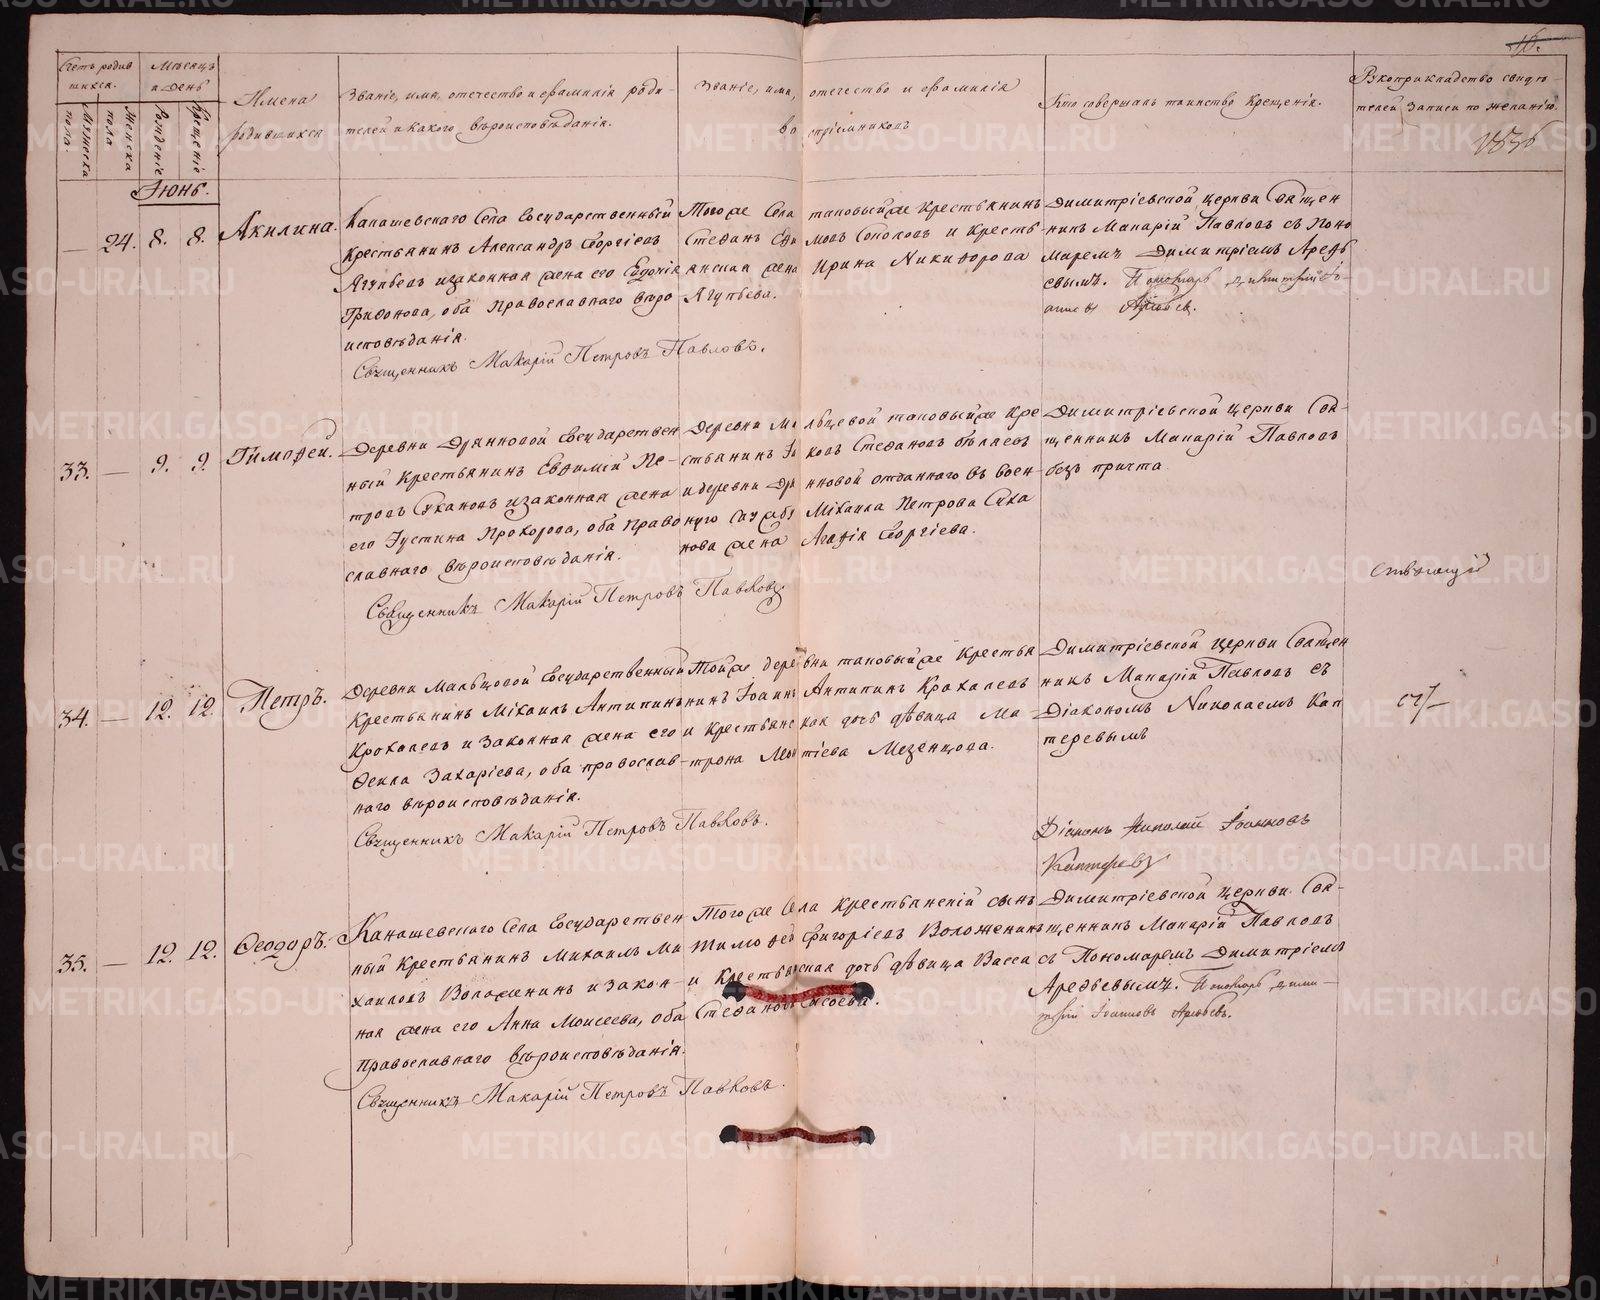 Счетъ родив
шихся.
Мужеска
пола.
Женска
пола
Мѣсяцъ
и день
Рожденіе
Крещеніе
Имена
родившихся
Званіе, имя, отечество и фамилія роди-
телей и какого вѣроисповѣданія.
Званіе, имя, отечество и фамилія
воспріемниковъ
Кто совершалъ таинство крещенія.
Рукоприкладство свидѣ-
телей записи по желанію.
16.
Іюнь.
24. 8. 8. Акилина.
Канашевскаго Села Государственный
крестьянинъ Александръ Георгіевъ
Агупьевъ и законная жена его Евдокія
Трифонова, оба православнаго вѣро
исповѣданія.
Священникъ Макарій Петровъ Павловъ.
Того же Села таковый же крестьянинъ
Стефанъ Соколовъ и кресть
янская жена Ирина Никифорова
Агупьева.
Димитріевской церкви Священ
никъ Макарій Павловъ съ поно
маремъ Димитріемъ Арефь
евымъ. Пономарь Димитрій
Арефьев.
33. — 9. 9. Тимофей.
Деревни Дрянновой Государствен
ный крестьянинъ Евфимій Пе-
тровъ Сухановъ и законная жена
его Іустина Прохорова, оба право
славнаго вѣроисповѣданія.
Священникъ Макарій Петровъ Павловъ.
Деревни Мальцевой таковый же кре
стьянинъ Стефановъ Бѣляевъ
и деревни Дрянновой отданнаго въ воен-
ную службу Михаила Петрова Суха
нова жена Агафія Георгіева.
Димитріевской церкви Свя-
щенникъ Макарій Павловъ
безъ причта
34. — 12. 12. Петръ.
Деревни Мальцовой Государственный
крестьянинъ Михаилъ Антипинъ
Крохалевъ и законная жена его
Фекла Захаріева, оба православ-
наго вѣроисповѣданія.
Священникъ Макарій Петровъ Павловъ.
Той же деревни таковый же крестья
нинъ Іоаннъ Антипинъ Крохалевъ
и крестьянская дочь дѣвица Ма
трона Леонтіева Мезенцова.
Димитріевской церкви Священ
никъ Макарій Павловъ съ
Діакономъ Николаемъ Кап
теревымъ
Діаконъ Николай Іоанновъ
Каптеревъ
35. — 12. 12. Феодоръ.
Канашевскаго Села Государствен
ный крестьянинъ Михаилъ Ми
хаиловъ Воложенинъ и закон-
ная жена его Анна Моисеева, оба
православнаго вѣроисповѣданія.
Священникъ Макарій Петровъ Павловъ.
Того же Села крестьянскій сынъ
Тимофей Григоріевъ Воложенинъ
и крестьянская дочь дѣвица Васса
Стефанова Сысоева.
Димитріевской церкви Свя-
щенникъ Макарій Павловъ
съ Пономаремъ Димитріемъ
Арефьевымъ. Пономарь Дими-
трій Іоанновъ Арефьевъ.
METRIKI.GASO-URAL.RU